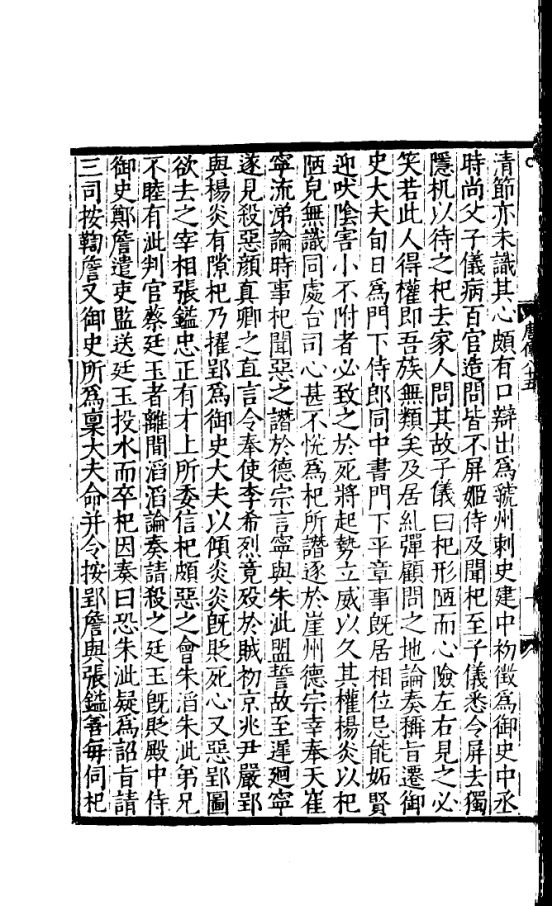 清節亦未識其心頗有口辯出爲虢州刺史建中初徵爲御史中丞
時尚父子儀病百官造問皆不屏姬侍及聞杞至子儀悉令屏去獨
隱机以待之杞去家人問其故子儀曰杞形陋而心險左右見之必
笑若此人得權即吾族無類矣及居糺彈顧問之地論奏稱旨遷御
史大夫旬日爲門下侍郎同中書門下平章事旣居相位忌能妬賢
迎吠陰害小不附者必致之於死將起勢立威以久其權楊炎以杞
陋皃無識同處台司心甚不悅爲杞所譖逐於崖州德宗幸奉天崔
寧流涕論時事杞聞惡之譖於德宗言寧與朱泚盟誓故至遲廻寧
遂見殺惡顔真卿之直言令奉使李希烈竟殁於賊初京兆尹嚴郢
與楊炎有隙杞乃擢郢爲御史大夫以傾炎炎旣貶死心又惡郢圖
欲去之宰相張鎰忠正有才上所委信杞頗惡之會朱滔朱泚弟兄
不睦有泚判官蔡廷玉者離間滔滔論奏請殺之廷玉旣貶殿中侍
御史鄭詹遣吏監送廷玉投水而卒杞因奏曰恐朱泚疑爲詔旨請
三司按鞫詹又御史所爲稟大夫命并令按郢詹與張鎰善每伺杞
唐傳八十五